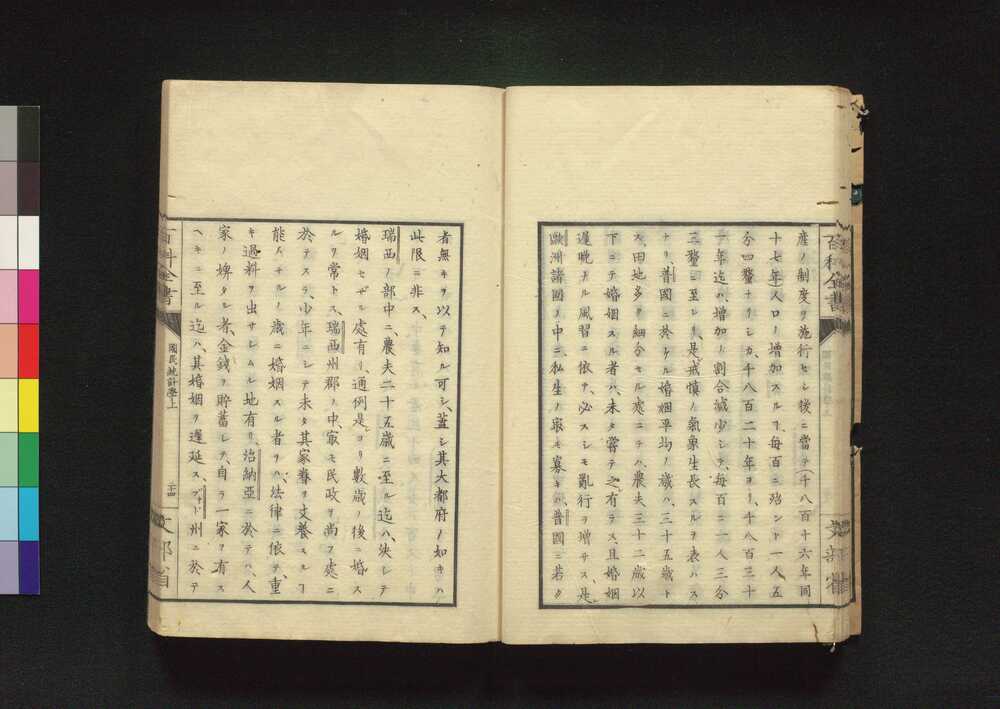 産ノ制度ヲ施行セシ後ニ當テ(千八百十六年同
十七年)人口ノ增加スルヿ、每百ニ殆ント一人五
分四釐ナリシカ、千八百二十年ヨリ、千八百三十
一年迄ハ、增加ノ割合減少シテ、每百ニ一人三分
三釐ニ至レリ、是レ戒愼ノ氣象生長スルヲ表ハス
ナリ、普國ニ於ケル婚姻平均ノ歲ハ、三十五歲ト
ス、田地多ク細分セル處ニテハ、農夫三十二歲以
下ニテ婚姻スル者ハ、未タ嘗テ之有ラス、且婚姻
遲晚ナル風習ニ依テ、必スシモ亂行ヲ增サス、是レ
歐洲諸國ノ中ニ、私生ノ最モ寡キハ、普國ニ若ク
者無キヲ以テ知ル可シ、蓋シ其大都府ノ如キハ
此限ニ非ス、
瑞西ノ部中ニ、農夫二十五歲ニ至ル迄ハ、決シテ
婚姻セザル處有リ、通例是ヨリ數歲ノ後ニ婚ス
ルヲ常トス、瑞西州郡ノ中、最モ民政ヲ尚フ處ニ
於テスラ、少年ニシテ未タ其家眷ヲ支養スルヿ
能ハザルノ歲ニ婚姻スル者ヲハ、法律ニ依テ、重
キ過料ヲ出サシムル地有リ、治納亞ニ於テハ、人
家ノ婢タル者、金錢ヲ貯蓄シテ、自ラ一家ヲ有ス
ヘキニ至ル迄ハ、其婚姻ヲ遲延ス、ブァド州ニ於テ
百科全書
國民統計學上
二十四
文部省
百科全書
文部省